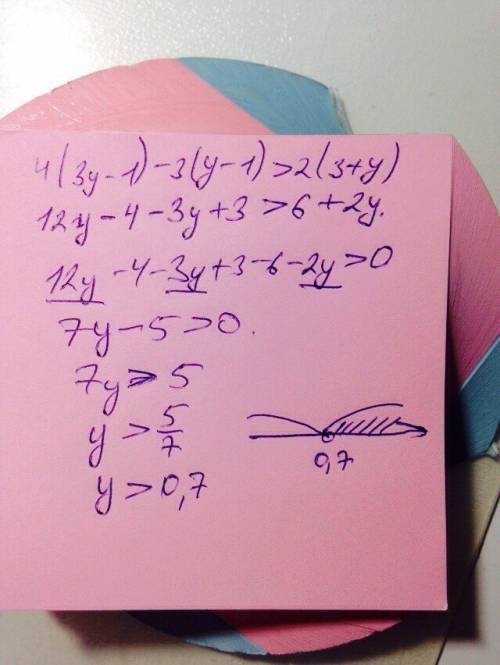 4(3y-1)-3(y-1)>2(3+y)
12y-4-3y+3>6+2y.
12y-4-3y+3-6-2y>0
7y-5>0.
7y>5
y>5/7
y>0,7
0,7